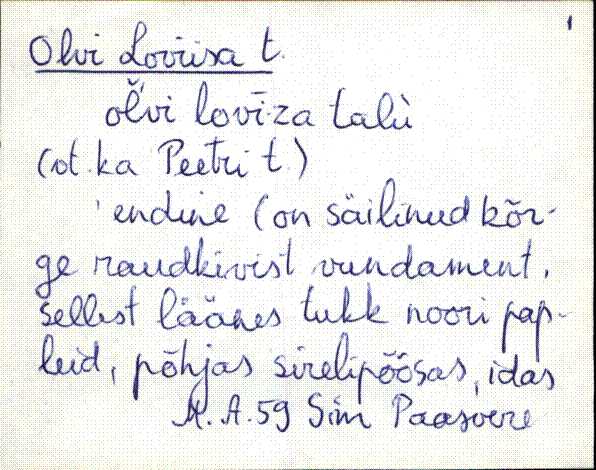 1
Olvi Loviisa t.
ol̆vi lovī·za talù
(vt. ka Peetri t.)
endine (on säilinud kõr-
ge raudkivist vundament,
sellest läänes tukk noori pap-
leid, põhjas sirelipõõsas, idas
M. A. 59 Sim Paasvere